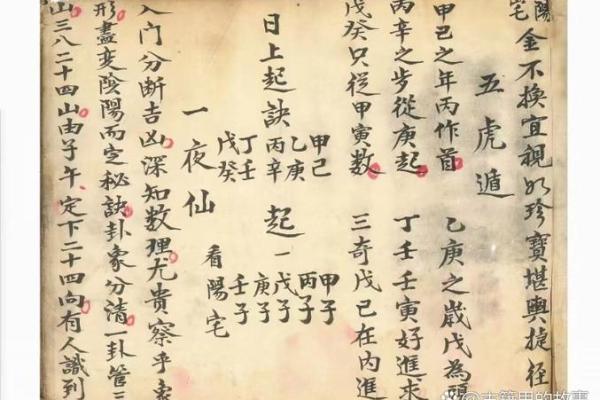 陽宅
金不換宜視如珍寶堪輿捷径
五虎遁
甲己之年丙作首 乙庚之歳戊為頭
丙辛之步從庚起 丁壬壬寅好進求
戊癸只從甲寅数 三奇戊己在内進
日上起訣
甲己
乙庚
丙辛
丁壬
戊癸
起
甲子
丙子
戊子
庚子
壬子
一夜仙 看陽宅
入门分断吉凶深知数理尤貴察乎
形盡变陰陽而定秘訣卦象分清一卦管三
山三八二十四山由子午定下二十四向有人識到